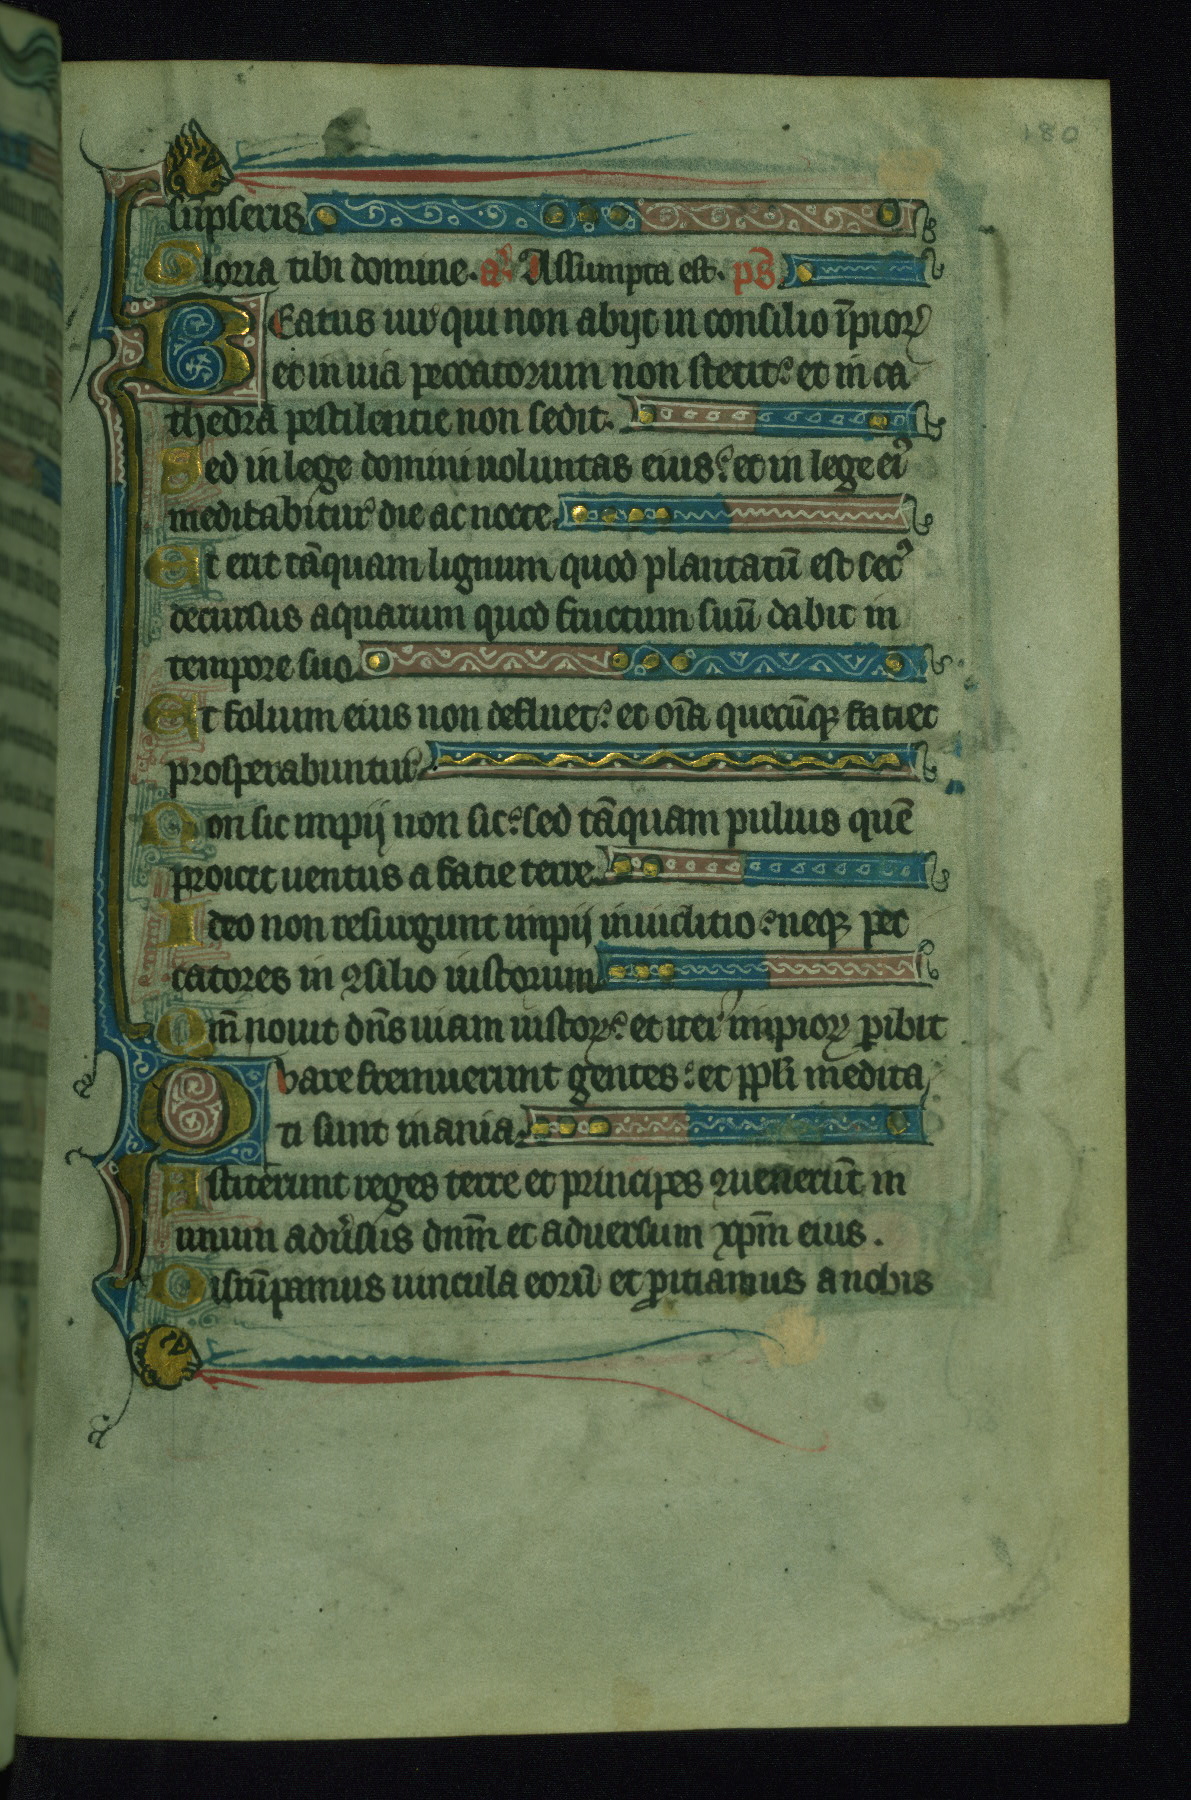 180
sūpseris
Gloria tibi domine. añ. Assumpta est. ps̄.
Beatus uir qui non abijt in consilio īpioꝝ
et in uia peccatorum non stetit: et in ca
thedra pestilentie non sedit.
Sed in lege domini uoluntas eius: et in lege eiꝰ
meditabitur die ac nocte.
Et erit tāquam lignum quod plantatū est secꝰ
decursus aquarum quod fructum suū dabit in
tempore suo
Et folium eius non defluet: et oīa quecūqꝫ faciet
prosperabuntur
Non sic impij non sic: sed tāquam puluis quē
proicit uentus a facie terre
Ideo non resurgunt impij in iuditio: neqꝫ pec
catores in ꝯsilio iustorum
Qm̄ nouit dn̄s uiam iustoꝝ: et iter impioꝝ ꝑibit
Quare fremuerunt gentes: et pp̄li medita
ti sunt inania.
Astiterunt reges terre et principes ꝯuenerūt in
unum adu̓sus dnm̄ et aduersum xp̄m eius.
Disrūpamus uincula eorū et ꝓitiamus a nobis